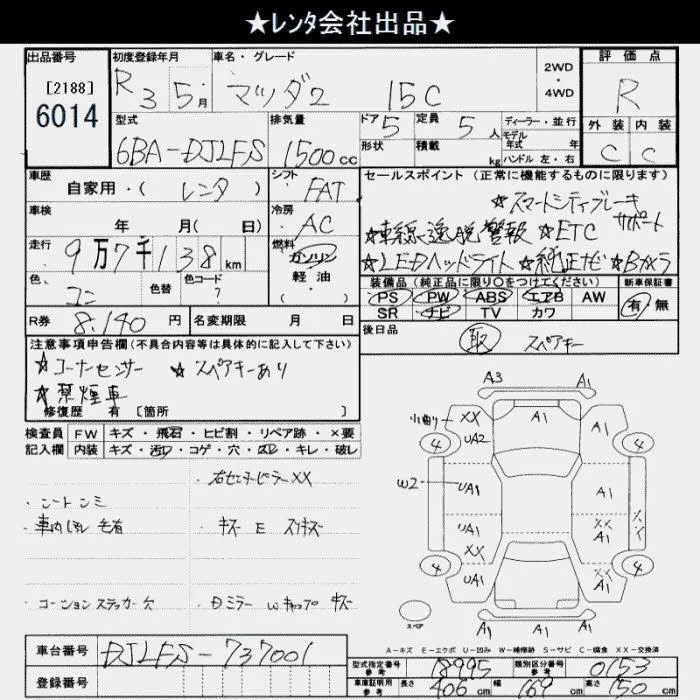 ★レンタ会社出品★
出品番号 初度登録年月 車名・グレード 2WD・4WD 評価点
[2188] R3 5月 マツダ2 15C R
6014
型式 排気量 ドア 定員 ディーラー・並行 外装 内装
6BA-DJLFS 1500cc 5 5人 モデル年式 年 C C
形状 積載 kg ハンドル 左・右
車歴 シフト セールスポイント(正常に機能するものに限ります)
自家用・( レンタ ) FAT ★スマートシティブレーキサポート
車検 年 月( 日) 冷房 AC ★車線逸脱警報 ★ETC
走行 9万7千138km 燃料 ガソリン 軽油・( ) ★LEDヘッドライト ★純正ナビ ★Bカメラ
色 色替 色コード 装備品(純正品に限り○をつけてください) 新車保証書
コン ? PS PW ABS エアB AW 有 無
SR ナビ TV カワ
R券 8,140円 名変期限 月 日 後日品
取 スペアキー
注意事項申告欄(不具合内容等は具体的に記入して下さい)
★コーナーセンサー ★スペアキーあり
★禁煙車
修復歴 有 [箇所 ]
検査員 FW キズ・飛石・ヒビ割・リペア跡・×要
記入欄 内装 キズ・汚れ・コゲ・穴・スレ・キレ・破レ
右センターピラーXX
・シートシミ
・車内 毛有 キズ E スリキズ
・コーションステッカー欠 Dミラー Wキャップ キズ
A3 A1
小曲り XX A1 A1
4 UA2 4
W2 UA1 A1
UA1 XX A1
XX XX
4 UA1 A1 4
スペア A1 A1
A-キズ E-エクボ U-凹み W-補修跡 S-サビ C-腐食 XX-交換済
車台番号 DJLFS-737001
登録番号
型式指定番号 参考 18995 類別区分番号 参考 0153
車庫証明用 参考 長さ 406cm 幅 169cm 高さ 150cm